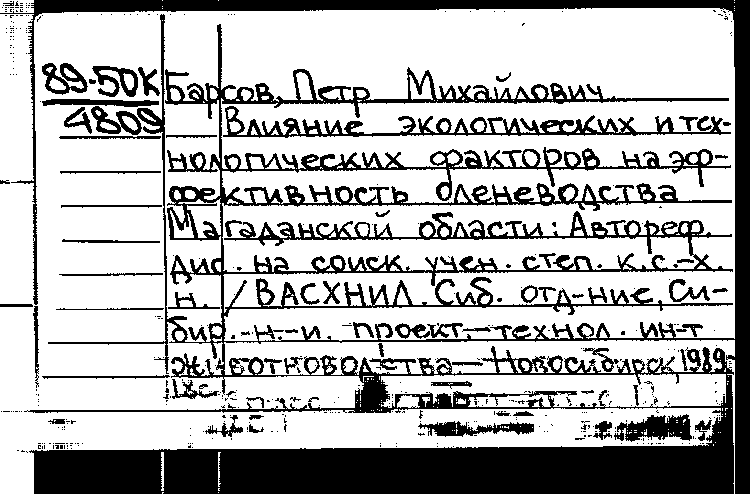 89-50К
4809
Барсов, Петр Михайлович.
Влияние экологических и тех-
нологических факторов на эф-
фективность оленеводства
Магаданской области: Автореф.
дис. на соиск. учен. степ. к.с.-х.
н. / ВАСХНИЛ. Сиб. отд-ние, Си-
бир.-н.-и. проект.-технол. ин-т
животноводства — Новосибирск, 1989-
18с.